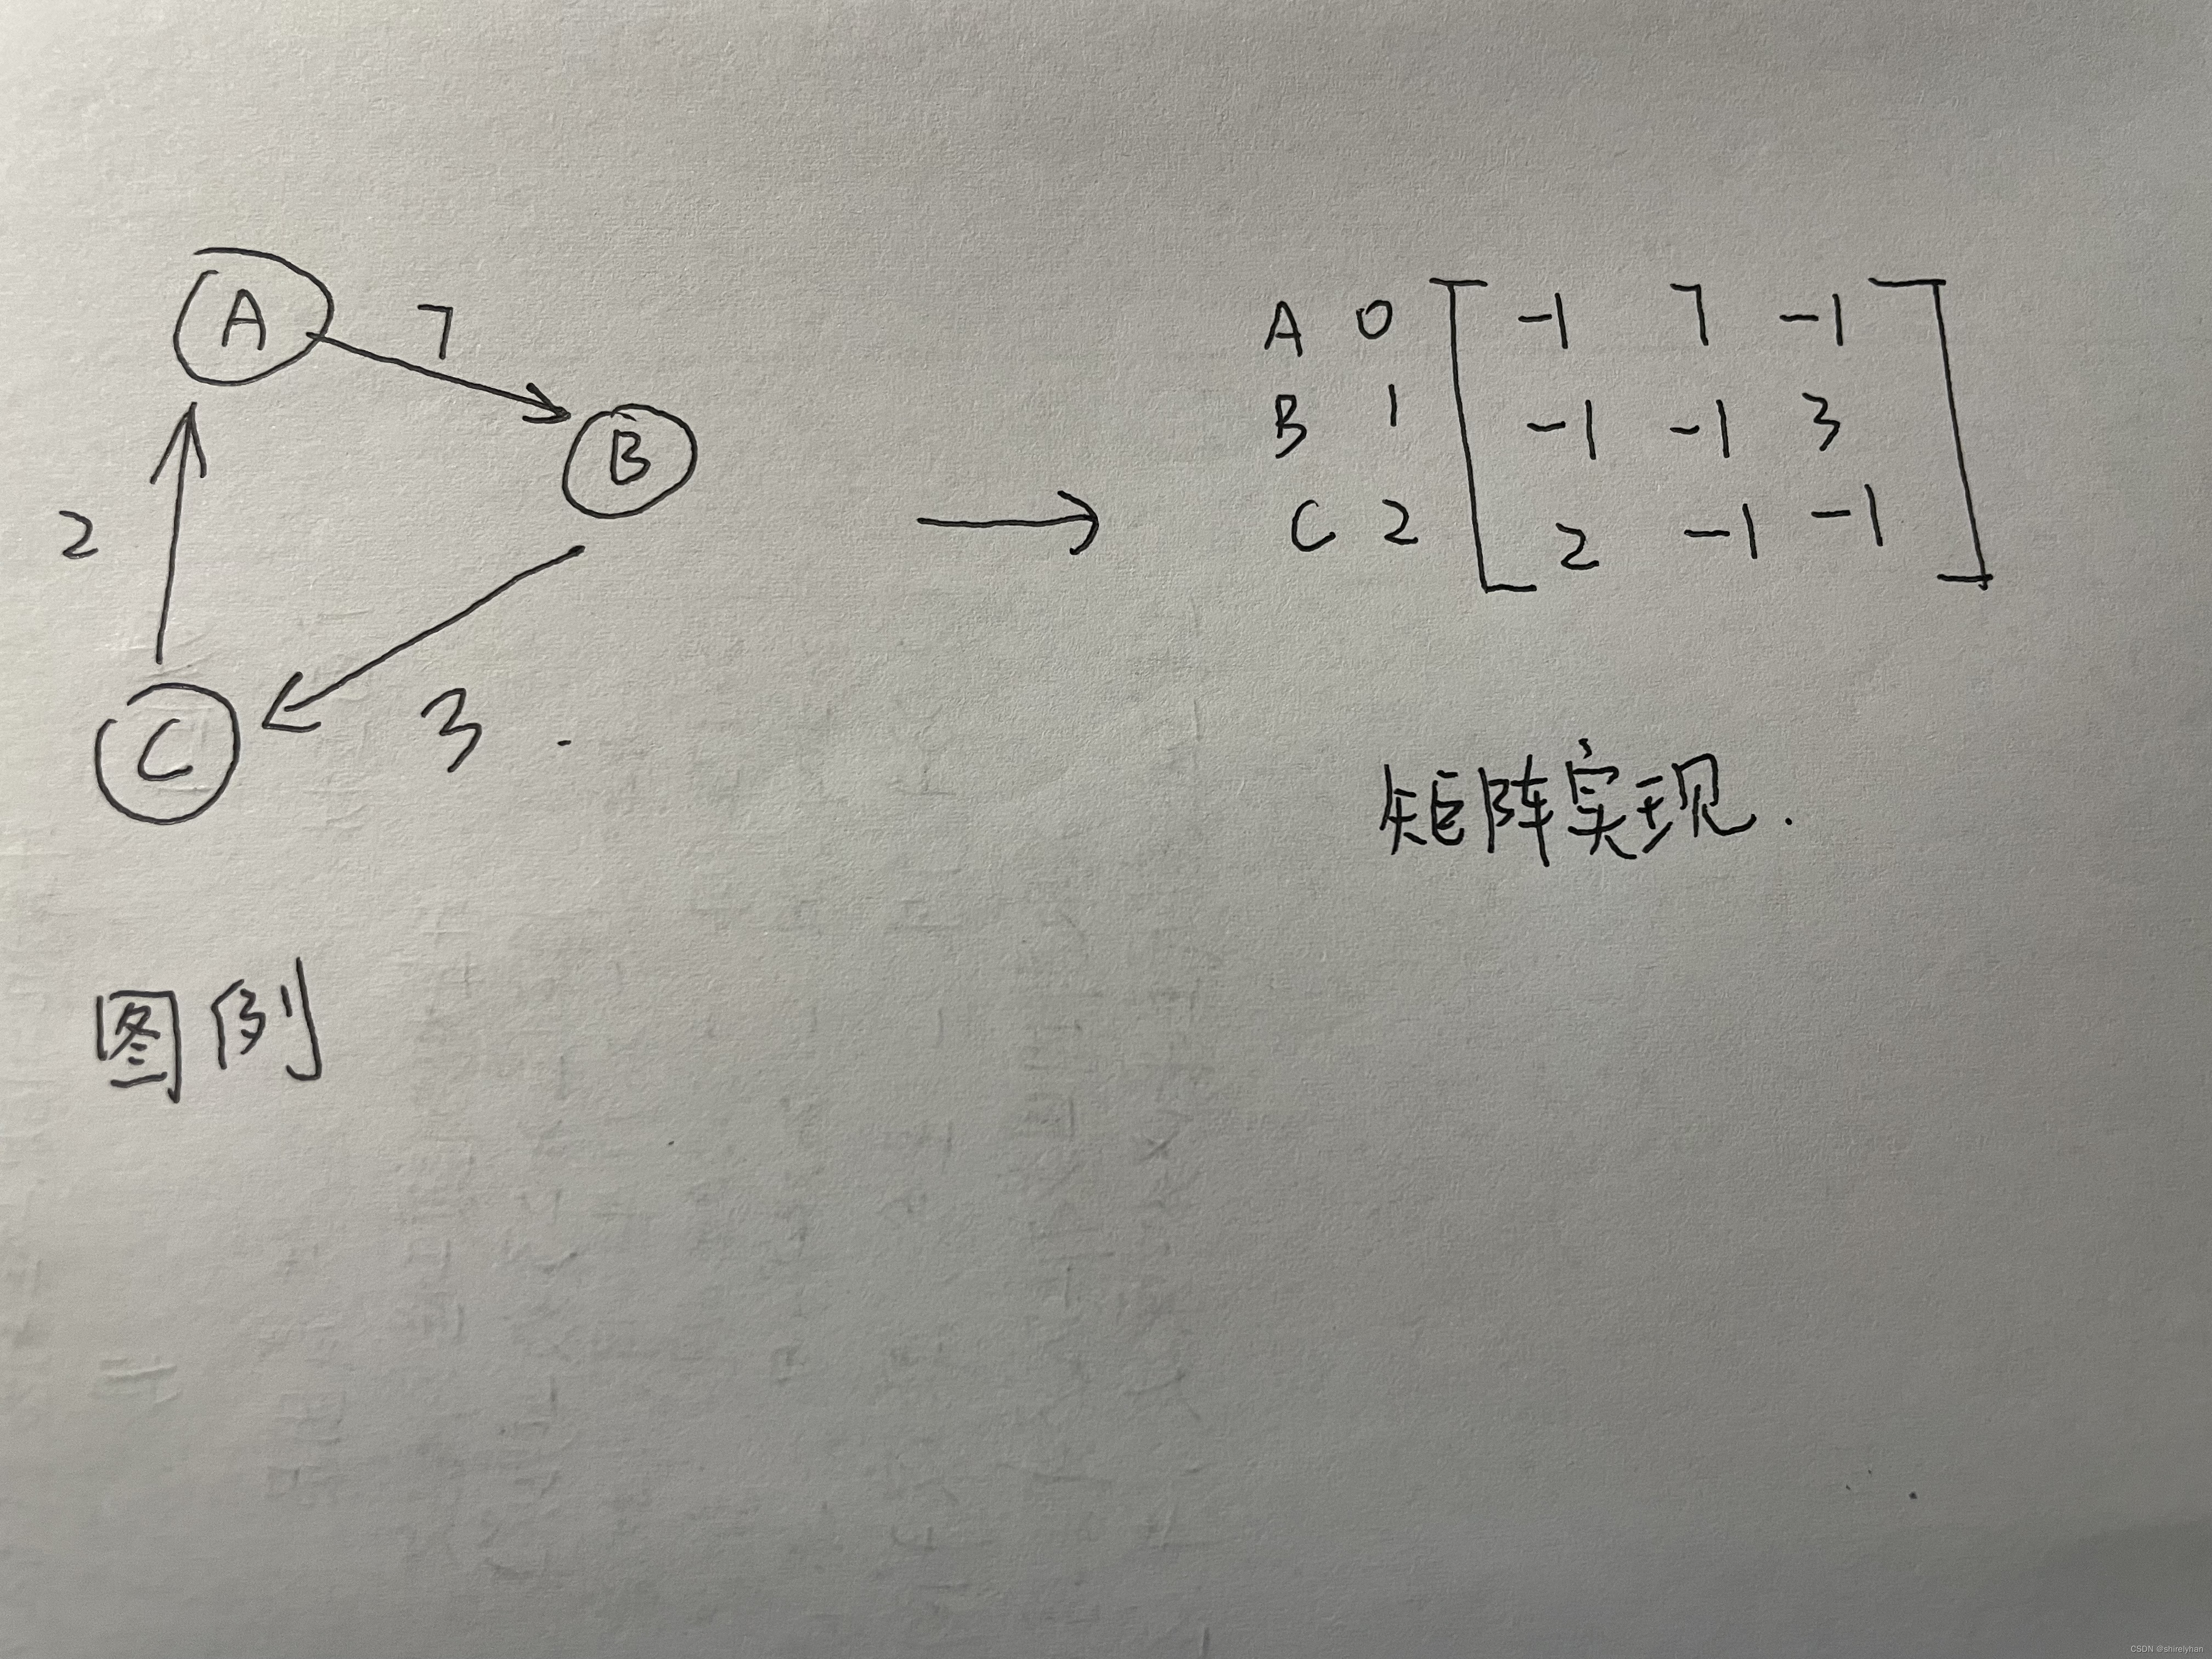 A 7
B
2
C 3 .
图例
A 0 -1 7 -1
B 1 -1 -1 3
C 2 2 -1 -1
矩阵实现.
CSDN @shirelyhan